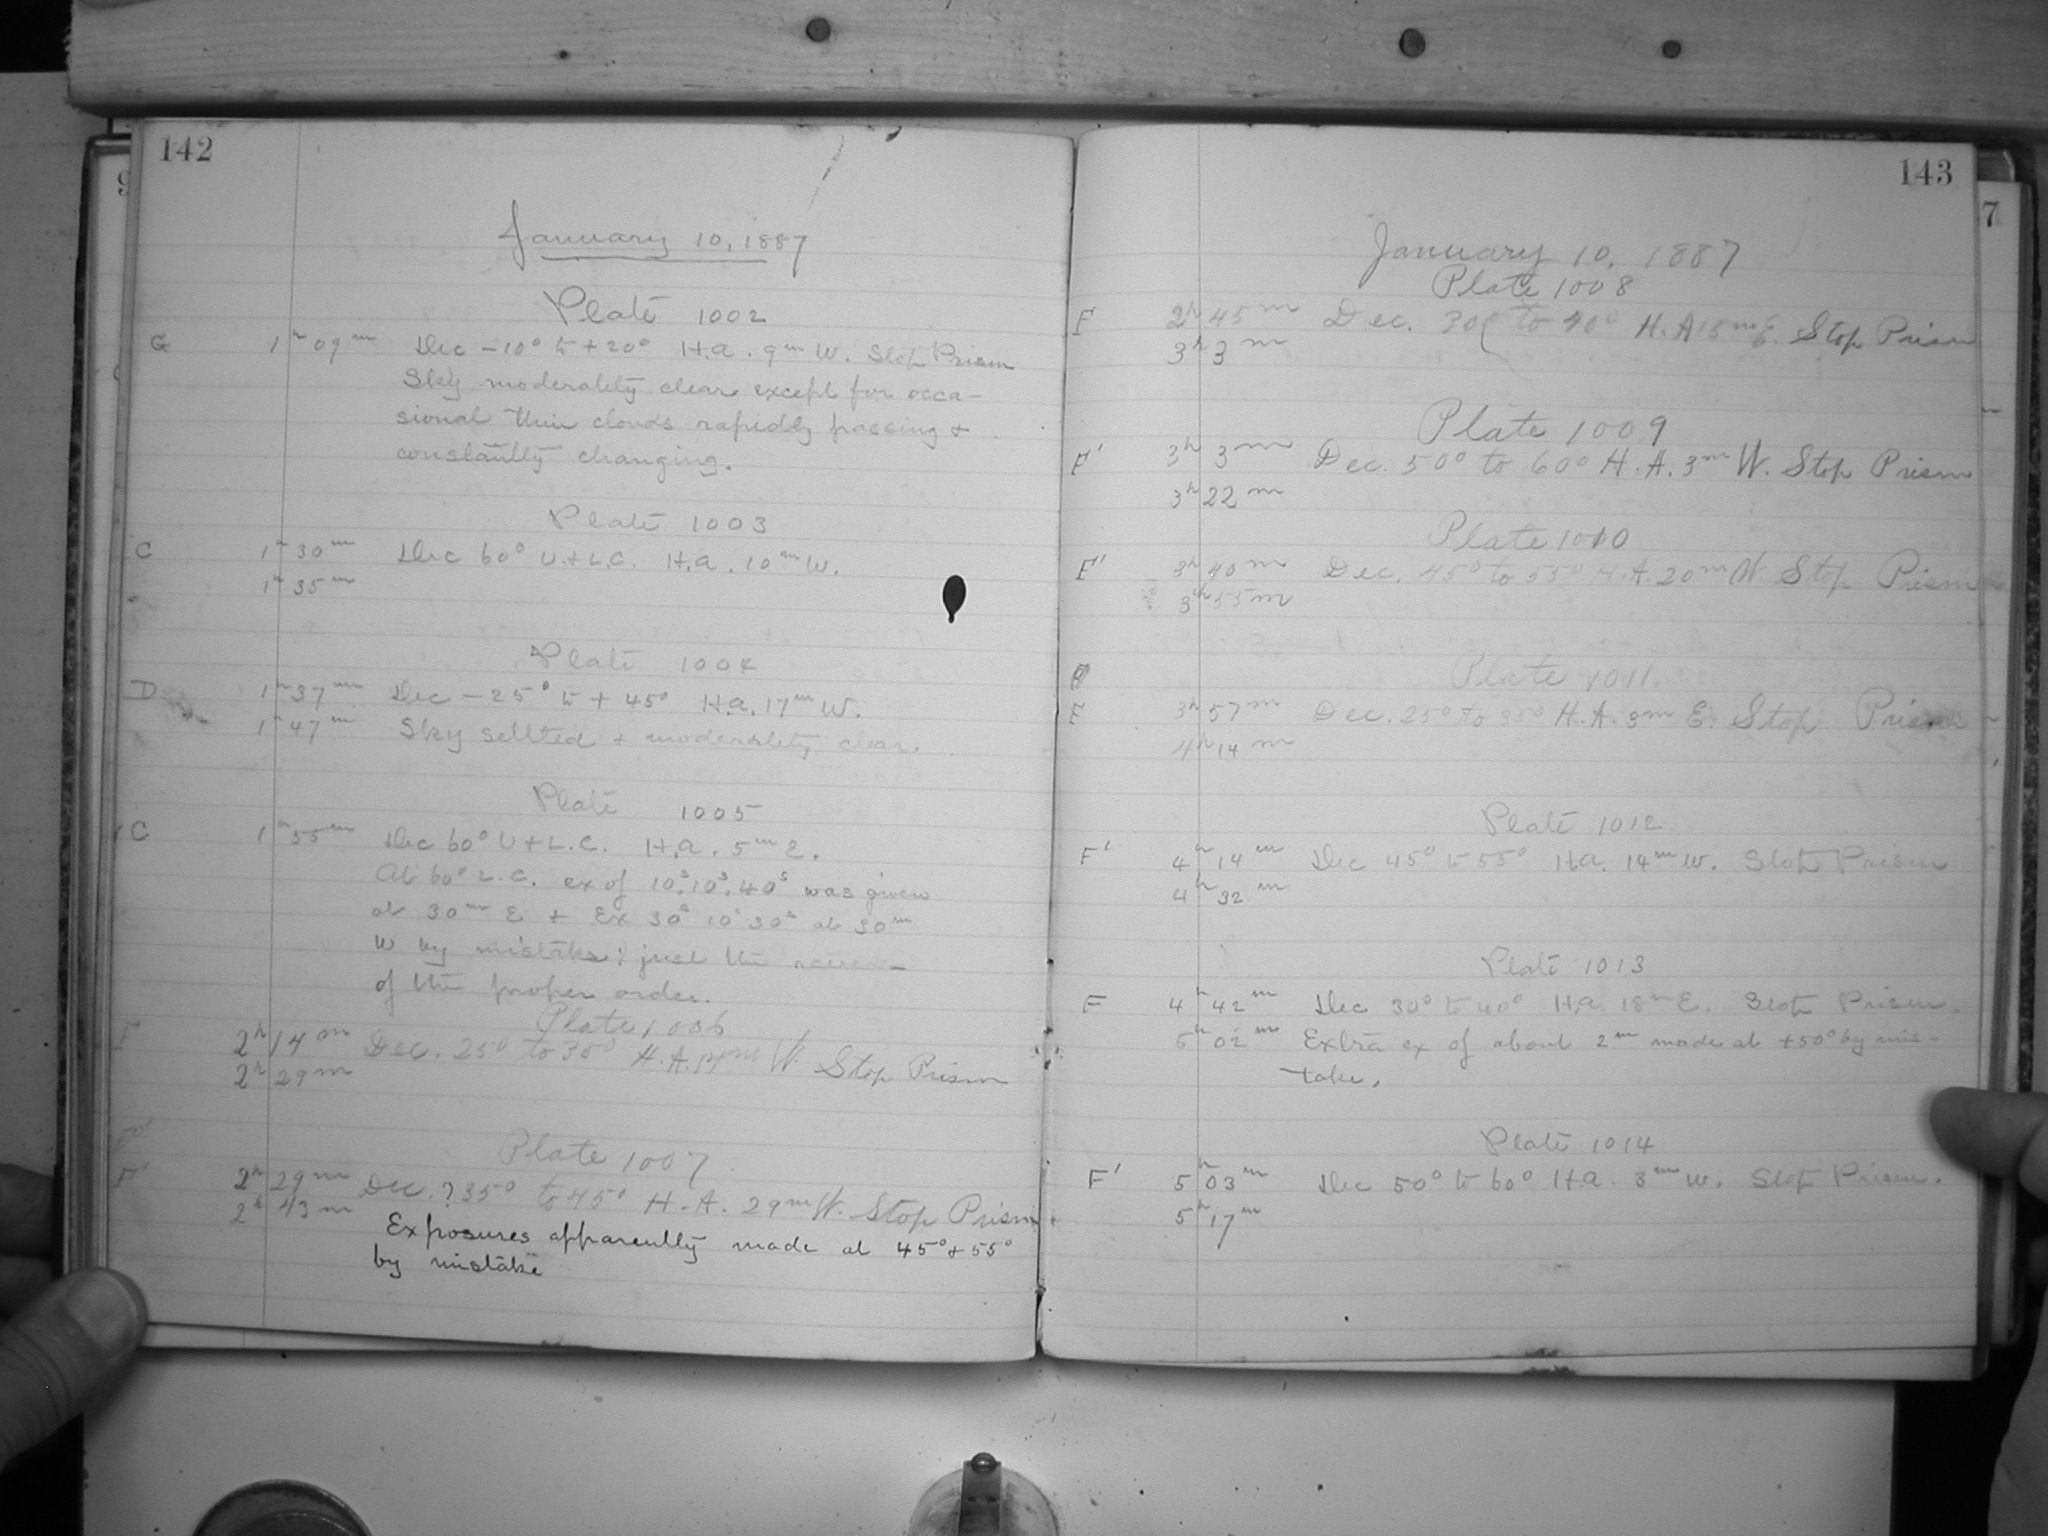 142
January 10, 1887
Plate 1002
G 1h 09m Dec -10° to +20° H.a. 9m W. Stop Prism
Sky moderately clear except for occa-
sional thin clouds rapidly passing &
constantly changing.
Plate 1003
C 1h 30m Dec 60° U.+L.C. H.a. 10m W.
1h 35m
Plate 1004
D 1h 37m Dec -25° to +45° H.a. 17m W.
1h 47m Sky settled & moderately clear.
Plate 1005
C 1h 55m Dec 60° U+L.C. H.a. 5m E.
At 60° L.C. ex of 10s.10s.40s was given
at 30m E & Ex 30s 10s 30s at 30m
W by mistake; just the reverse
of the proper order.
Plate 1006
F 2h 14m Dec. 25° to 35° H.A. 14m W. Stop Prism
2h 29m
Plate 1007
F' 2h 29m Dec. ? 35° to 45° H.A. 29m W. Stop Prism
2h 43m
Exposures apparently made at 45° & 55°
by mistake
143
7
January 10, 1887
Plate 1008
F 2h 45m Dec. 30° to 40° H.A 15m E. Stop Prism
3h 3m
Plate 1009
F' 3h 3m Dec. 50° to 60° H.A. 3m W. Stop Prism
3h 22m
Plate 1010
F' 3h 40m Dec. 45° to 55° H.A. 20m W. Stop Prism
3h 55m
Plate 1011.
F 3h 57m Dec. 25° to 35° H.A. 3m E. Stop Prism
4h 14m
Plate 1012
F' 4h 14m Dec 45° to 55° H.a. 14m W. Stop Prism
4h 32m
Plate 1013
F 4h 42m Dec 30° to 40° H.a. 18m E. Stop Prism.
5h 02m Extra ex of about 2m made at +50° by mis-
take.
Plate 1014
F' 5h 03m Dec 50° to 60° H.a. 3m W. Stop Prism.
5h 17m